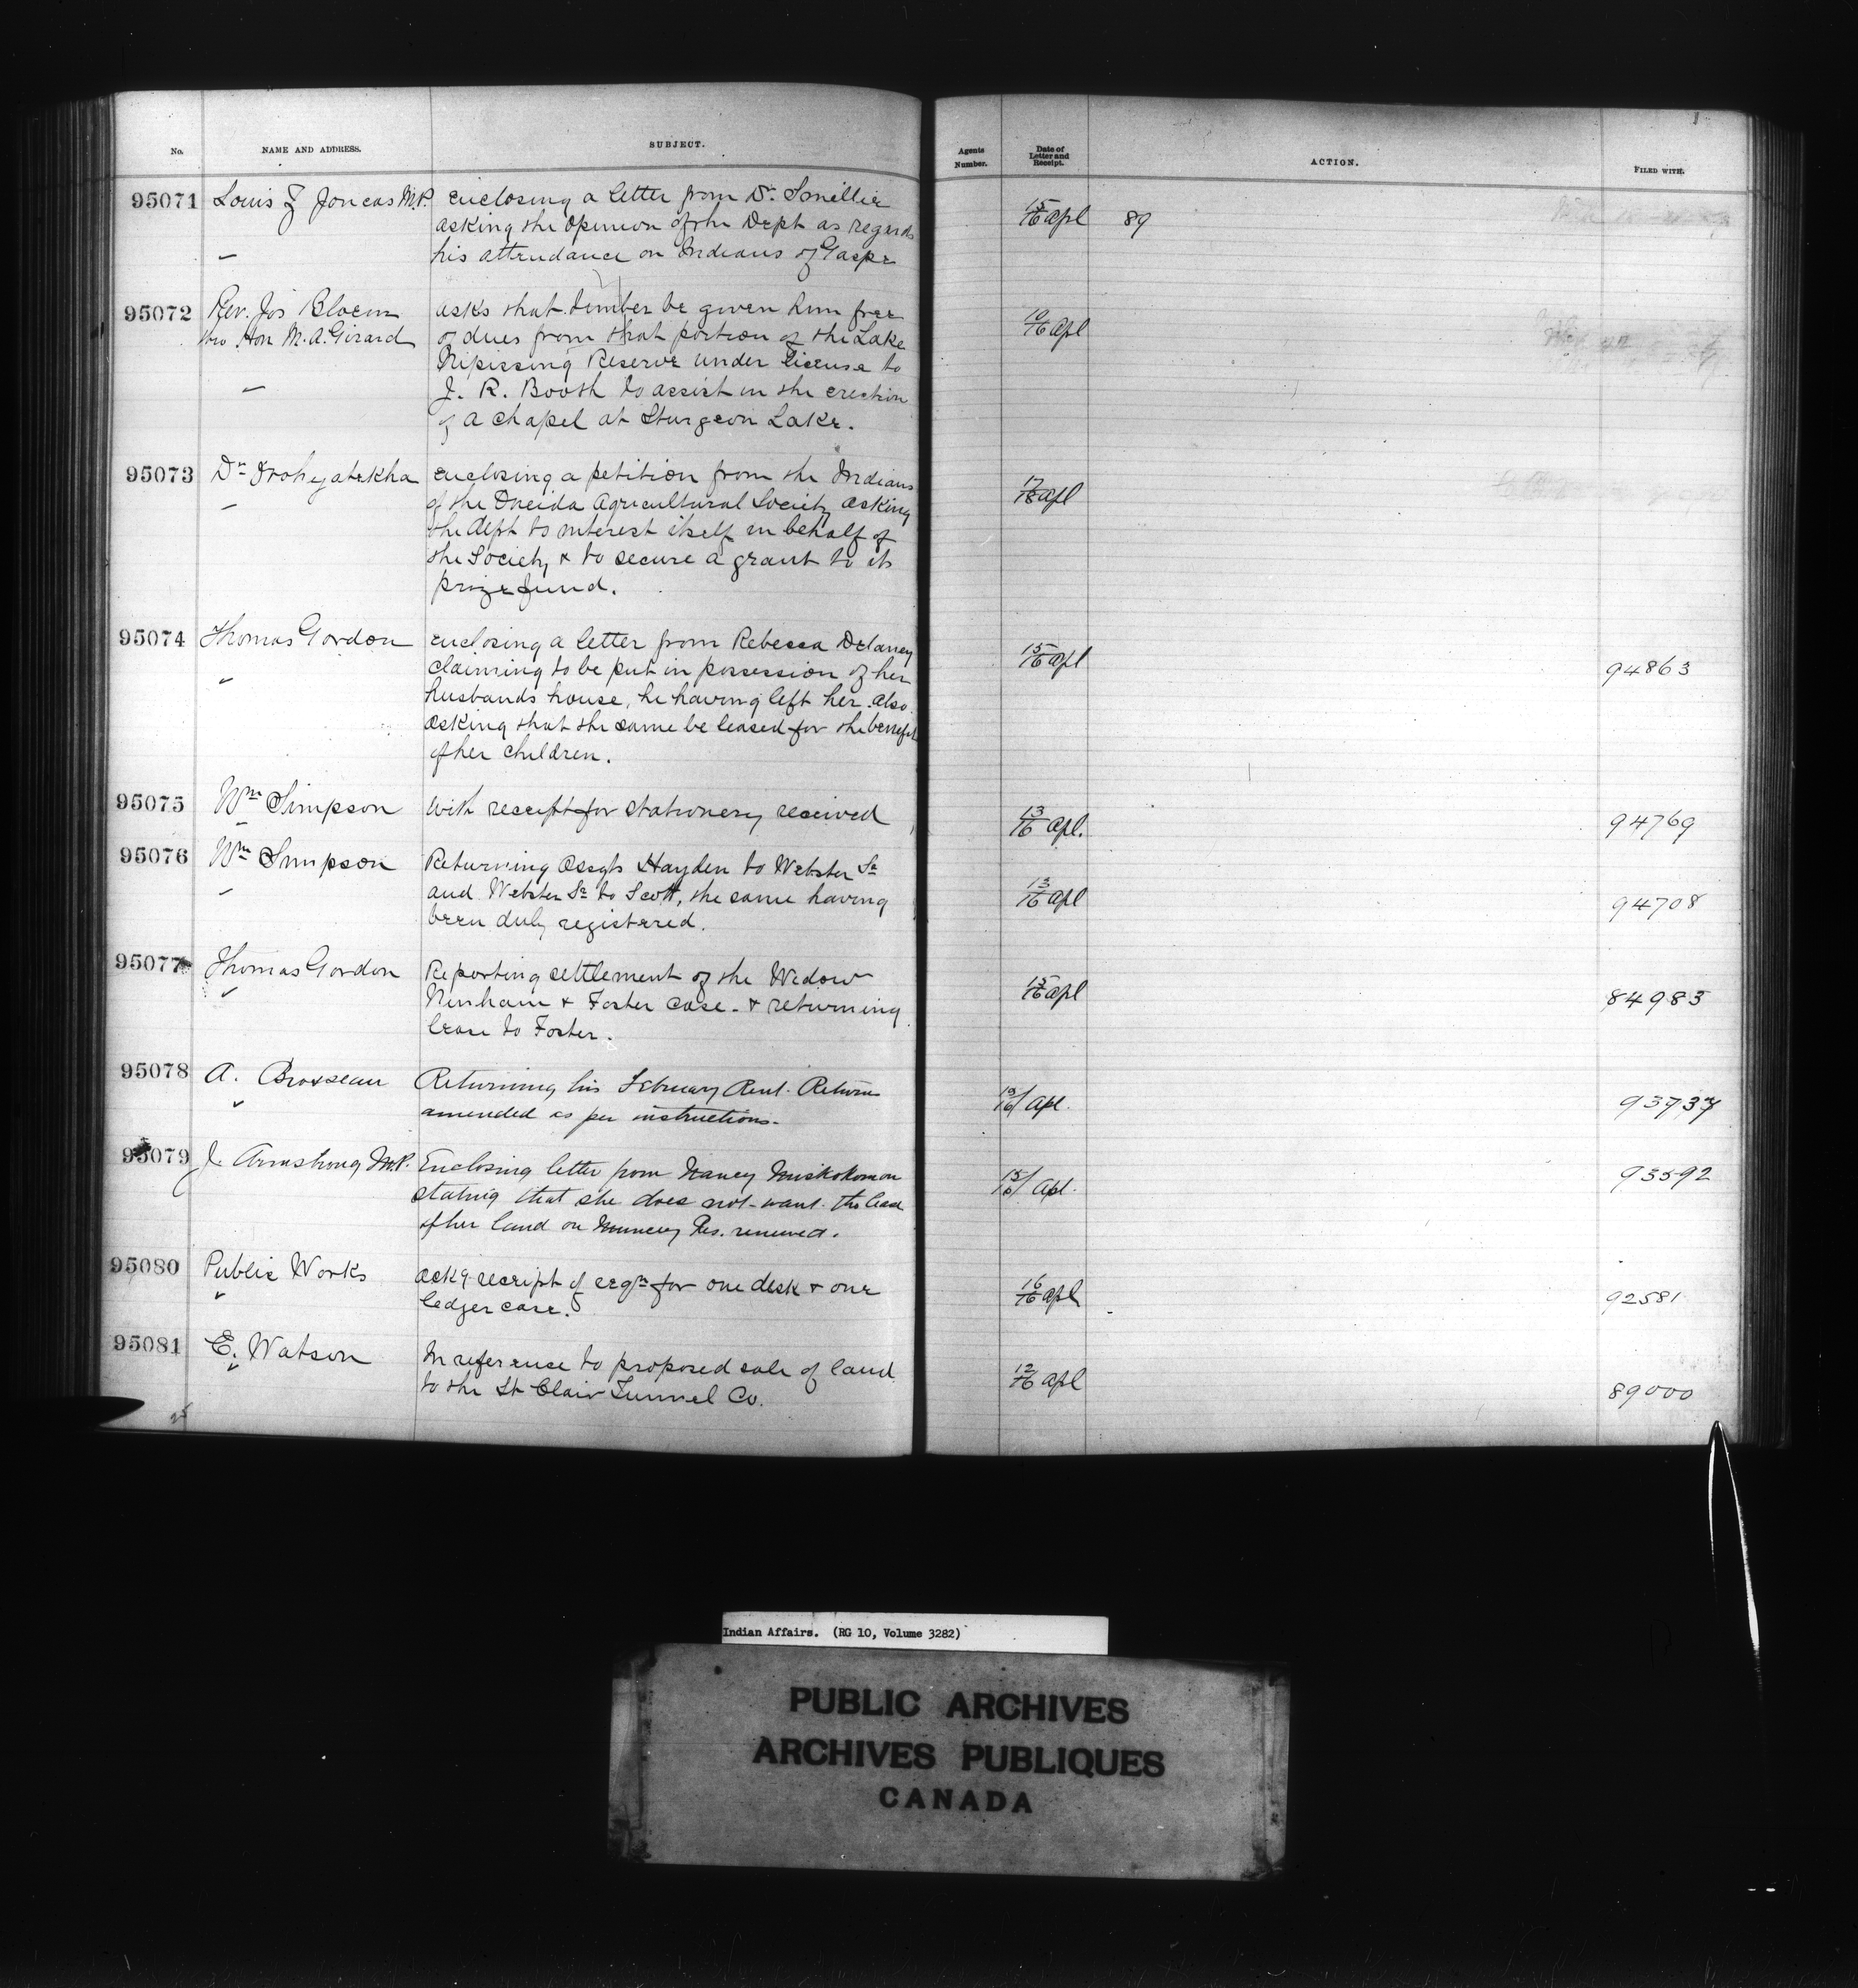 No. NAME AND ADDRESS. SUBJECT. Agents Number. Date of Letter and Receipt. ACTION. FILED WITH.
95071 Louis Z Joncas M.P. enclosing a letter from Dr. Smellie 15/16 Apl 89
asking the opinion of the Dept as regards
his attendance on Indians of Gaspe
95072 Rev. Jos Bloem asks that timber be given him free 10/16 Apl
thro Hon M. A. Girard of dues from that portion of the Lake
Nipissing Reserve under license to
J. R. Booth to assist in the erection
of a chapel at Sturgeon Lake.
95073 Dr Orohyatekha enclosing a petition from the Indians 17/18 Apl
of the Oneida Agricultural Society asking
the Dept to interest itself in behalf of
the Society & to secure a grant to its
prize fund.
95074 Thomas Gordon enclosing a letter from Rebecca Delaney 15/16 Apl 94863
claiming to be put in possession of her
husbands house, he having left her. Also
asking that the same be leased for the benefit
of her children.
95075 Wm Simpson With receipt for stationery received 13/16 Apl. 94769
95076 Wm Simpson Returning Assgts Hayden to Webster Sr 13/16 Apl 94708
and Webster Sr to Scott, the same having
been duly registered.
95077 Thomas Gordon Reporting settlement of the Widow 15/16 Apl 84983
Ninham & Foster case. & returning
lease to Foster.
95078 A. Brosseau Returning his February Rent Return 13/16/ Apl. 93737
amended as per instructions.
95079 J. Armstrong M.P. Enclosing letter from Nancy Miskokomon 15/16/ Apl. 93592
stating that she does not want the lease
of her land on Muncey Res. renewed.
95080 Public Works Ackg receipt of reqn for one desk & one 16/16 Apl 92581
ledger case.
95081 E. Watson In reference to proposed sale of land 12/16 Apl 89000
to the St Clair Tunnel Co.
Indian Affairs. (RG 10, Volume 3282)
PUBLIC ARCHIVES
ARCHIVES PUBLIQUES
CANADA